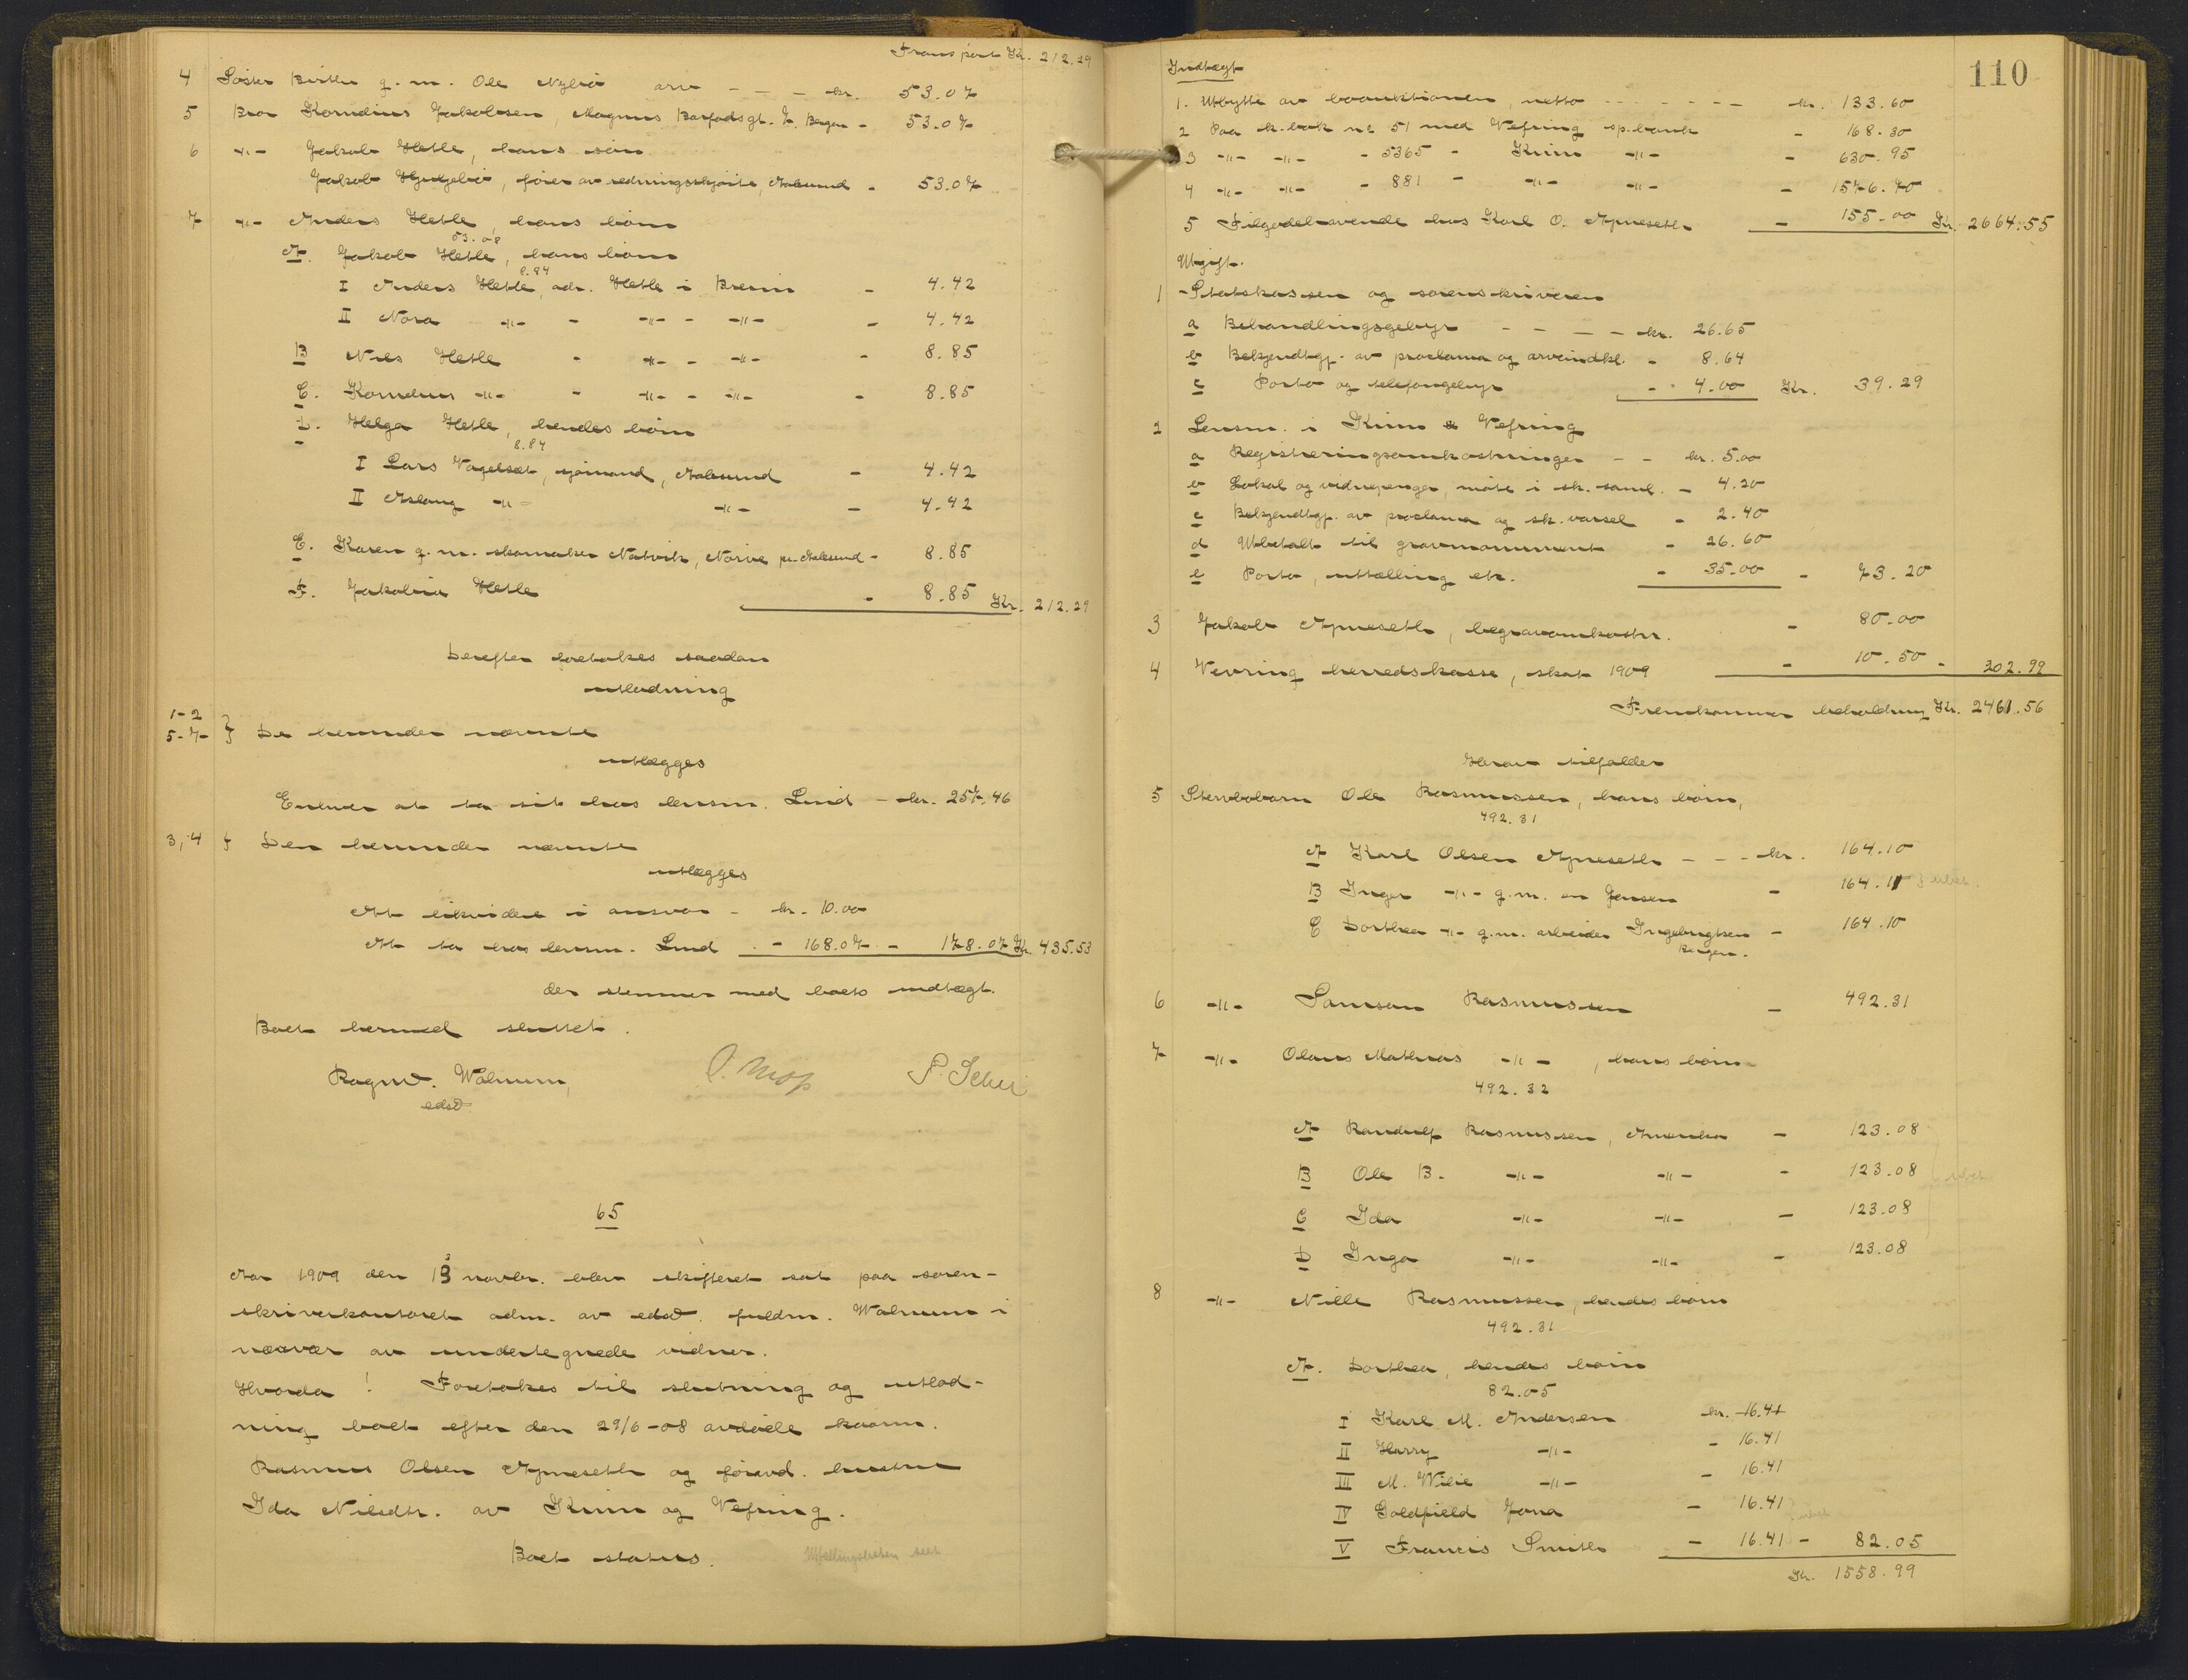 Transport Kr. 212.29
4 Søster Birthe g. m. Ole Nybø arv - - - kr. 53.07
5 Bror Kornelius Jakobsen, Magnus Barfodsgt. 7. Bergen - 53.07
6 -"- Jakob Hetle, hans søn
Jakob, fører av redningsskjøite, Aalesund - 53.07
7 -"- Anders Hetle, hans børn
53.08
A. Jakob Hetle, hans børn
8.84
I Anders Hetle, adr. Hetle i Breim - 4.42
II Nora -"- - -"- - -"- - 4.42
B Nils Hetle - -"- - -"- - 8.85
C. Kornelius -"- - -"- - -"- - 8.85
D. Helga Hetle, hendes børn
8.84
I Lars Vagelsæt, sjømand, Aalesund - 4.42
II Aslaug -"- -"- - 4.42
E. Karen g. m. skomaker Natvik, Nørve pr. Aalesund - 8.85
F. Jakobia Hetle - 8.85 Kr. 212.29
Derefter foretokes saadan
utlodning
1-2
5-7 } De herunder nævnte
utlægges
Enhver at ta sit hos lensm. Lind - kr. 257.46
3, 4 } Den herunder nævnte
utlægges
At likvidere i ansvar - kr. 10.00
At ta hos lensm. Lind - 168.07 - 178.07 Kr. 435.53
der stemmer med boets indtægt.
Boet hermed sluttet.
Ragnv. Walnum,
edsv
65
Aar 1909 den 13 novbr. blev skifteret sat paa soren-
skriverkontoret adm. av edsv. fuldm. Walnum i
nærvær av undertegnede vidner.
Hvorda! Foretokes til slutning og utlod-
ning boet efter den 29/6-08 avdøde kaarm.
Rasmus Olsen Apneseth og føravd. hustru
Ida Nilsdtr. av Kinn og Vefring.
Boet status.
110
Indtægt
1. Utbytte av boauktionen, netto - - - - - - - kr. 133.60
2 Paa k. bok nr 51 med Vefring sp.bank - 168.30
3 -"- -"- - 5365 - Kinn -"- - 630.95
4 -"- -"- - 881 - -"- -"- - 1576.70
5 Tilgodehavende hos Karl O. Apneseth - 155.00 Kr. 2664.55
Utgift.
1 Statskassen og sorenskriveren
a Behandlingsgebyr - - - - kr. 26.65
b Bekjendtgj. av proclama og arveindkl. - 8.64
c Porto og telefongebyr - 4.00 Kr. 39.29
2 Lensm. i Kinn & Vefring
a Registreringsomkostninger - - kr. 5.00
b Lokal og vidnepenger, møte i sk. saml. - 4.20
c Bekjendtgj. av proclama og sk. varsel - 2.40
d Utbetalt til gravmonument - 26.60
e Porto, uttælling etc. - 35.00 - 73.20
3 Jakob Apneseth, begravomkostn. - 80.00
4 Vevring herredskasse, skat 1909 - 10.50 - 202.99
Fremkommer beholdning Kr. 2461.56
Herav tilfalder
5 Stervbobarn Ole Rasmussen, hans børn,
492.31
A Karl Olsen Apneseth - - - kr. 164.10
B Inger -"- g. m. en Jensen - 164.11
C Dorthea -"- g. m. arbeider Ingebrigtsen - 164.10
Bergen.
6 -"- Samson Rasmussen - 492.31
7 -"- Olaus Mathias -"-, hans børn
492.32
A Randulf Rasmussen, Amerika - 123.08
B Ole B. -"- -"- - 123.08
C Ida -"- -"- - 123.08
D Inga -"- -"- - 123.08
8 -"- Nille Rasmussen, hendes børn
492.31
A. Dorthea, hendes børn
82.05
I Karl M. Andersen kr. 16.41
II Harry -"- - 16.41
III M. Wilie -"- - 16.41
IV Goldfield Jona - 16.41
V Francis Smith - 16.41 - 82.05
Kr. 1558.99